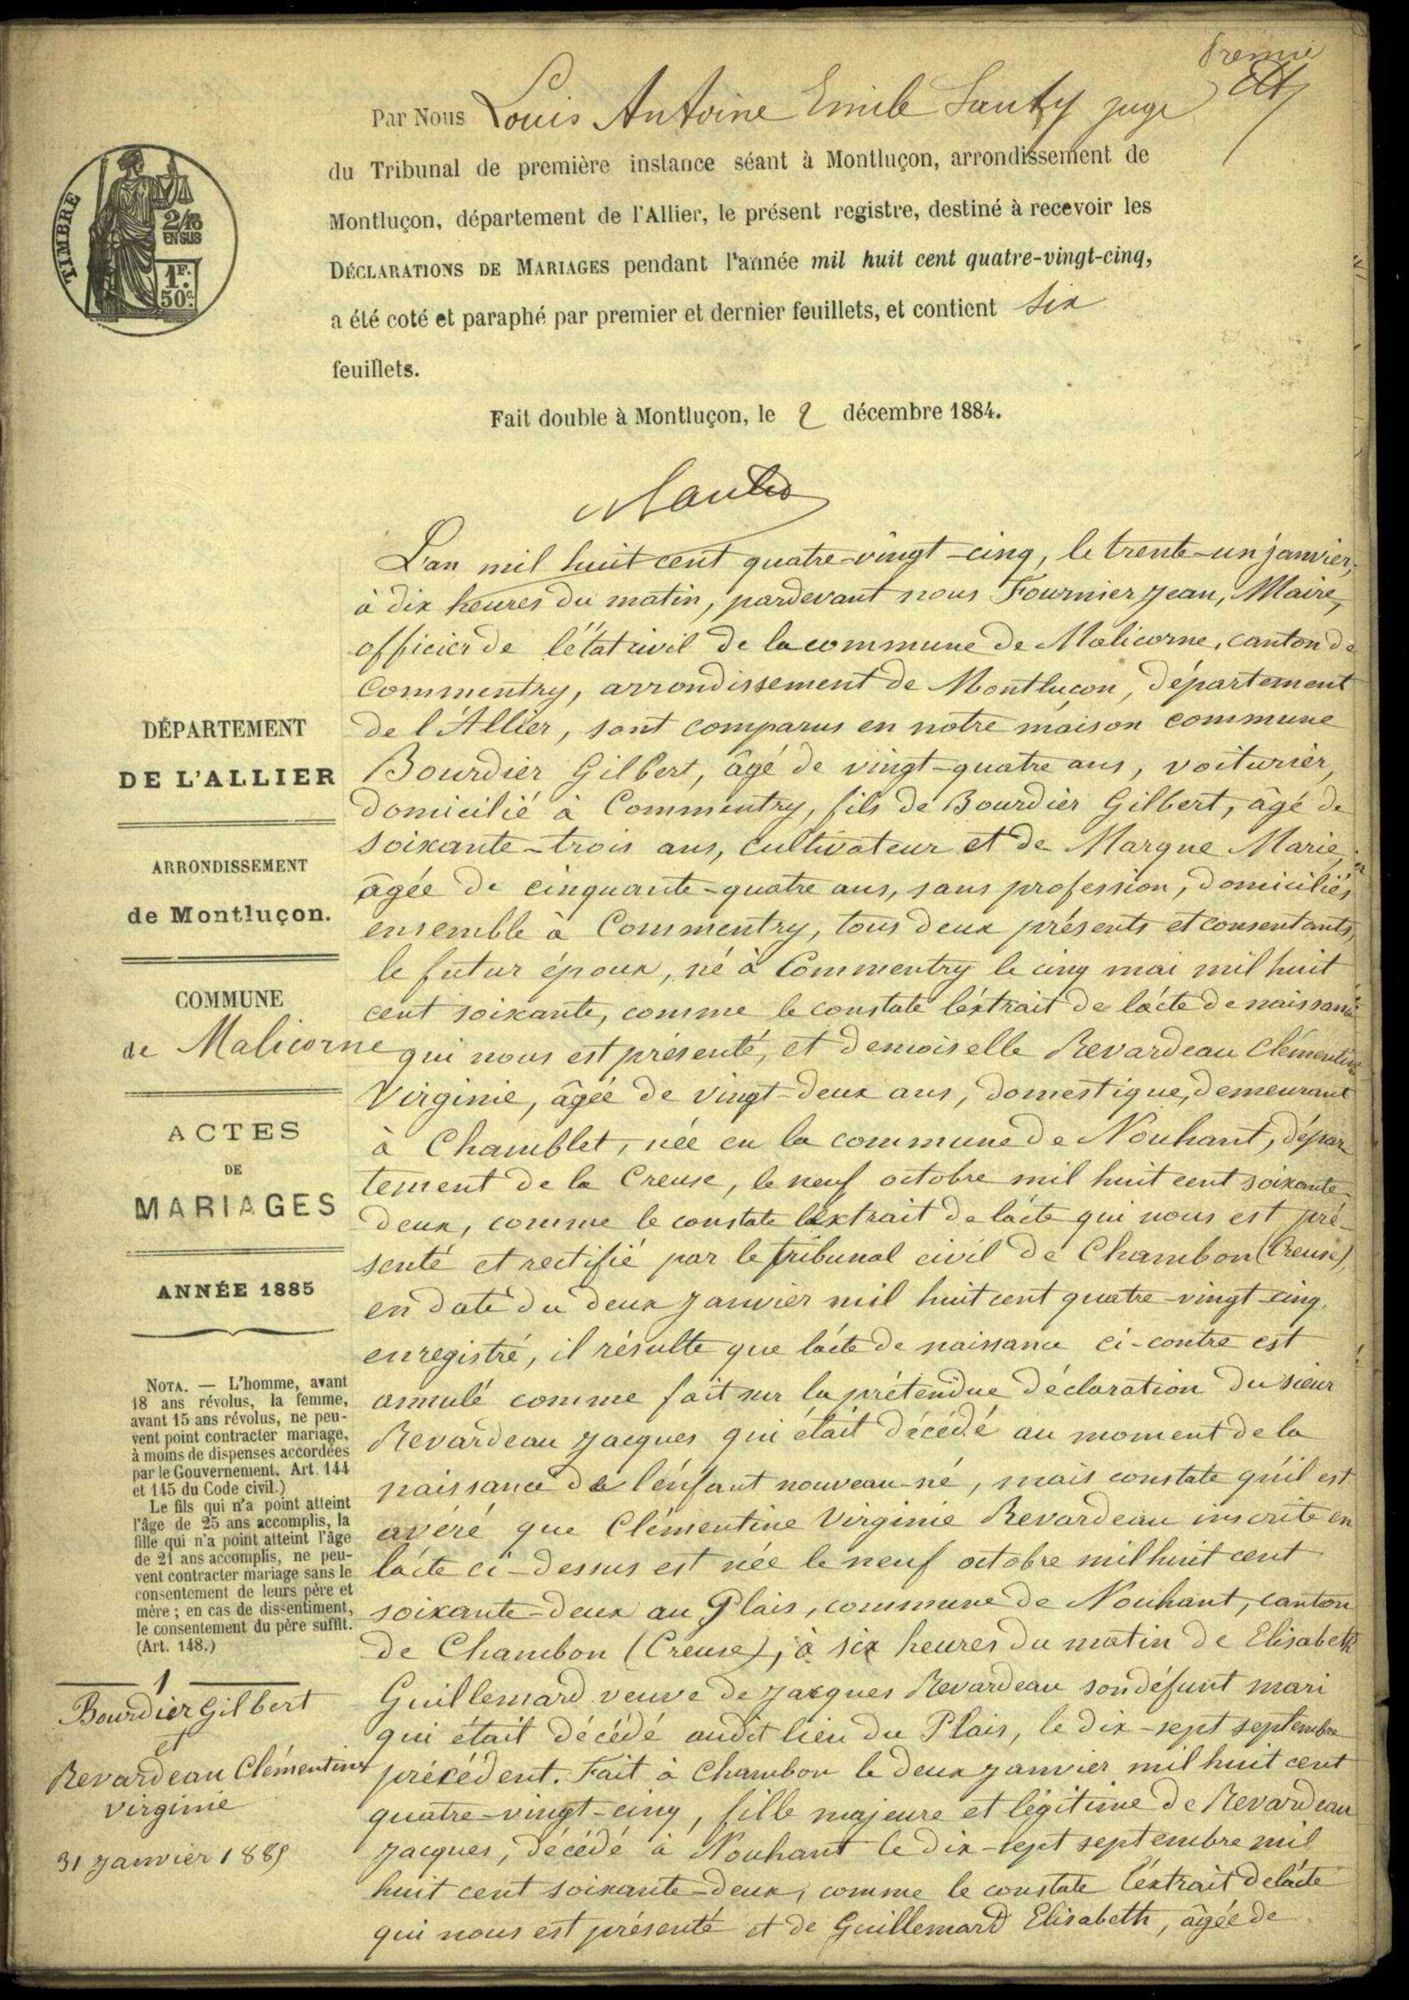 Premier
Par Nous Louis Antoine Emile juge
du Tribunal de première instance séant à Montluçon, arrondissement de
Montluçon, département de l'Allier, le présent registre, destiné à recevoir les
DÉCLARATIONS DE MARIAGES pendant l'année mil huit cent quatre-vingt-cinq,
a été coté et paraphé par premier et dernier feuillets, et contient six
feuillets.
Fait double à Montluçon, le 2 décembre 1884.
TIMBRE
2/10
EN SUS
1F.
50c.
L'an mil huit cent quatre-vingt-cinq, le trente-un janvier,
à dix heures du matin, pardevant nous Fournier Jean, Maire,
officier de l'état civil de la commune de Malicorne, canton de
Commentry, arrondissement de Montluçon, département
de l'Allier, sont comparus en notre maison commune
Bourdier Gilbert, âgé de vingt-quatre ans, voiturier,
domicilié à Commentry, fils de Bourdier Gilbert, âgé de
soixante-trois ans, cultivateur et de Marque Marie,
âgée de cinquante-quatre ans, sans profession, domiciliés
ensemble à Commentry, tous deux présents et consentants,
le futur époux, né à Commentry le cinq mai mil huit
cent soixante, comme le constate l'extrait de l'acte de naissance
qui nous est présenté, et demoiselle Revardeau Clémentine
Virginie, âgée de vingt-deux ans, domestique, demeurant
à Chamblet, née en la commune de Nouhant, dépar
tement de la Creuse, le neuf octobre mil huit cent soixante-
deux, comme le constate l'extrait de l'acte qui nous est pré-
senté et rectifié par le tribunal civil de Chambon (Creuse),
en date du deux janvier mil huit cent quatre-vingt-cinq.
enregistré, il résulte que l'acte de naissance ci-contre est
annulé comme fait sur la prétendue déclaration du sieur
Revardeau Jacques qui était décédé au moment de la
naissance de l'enfant nouveau-né, mais constate qu'il est
avéré que Clémentine Virginie Revardeau inscrite en
l'acte ci-dessus est née le neuf octobre mil huit cent
soixante-deux au Plais, commune de Nouhant, canton
de Chambon (Creuse), à six heures du matin de Elisabeth
Guillemard veuve de Jacques Revardeau son défunt mari
qui était décédé audit lieu du Plais, le dix-sept septembre
précédent. Fait à Chambon le deux janvier mil huit cent
quatre-vingt-cinq, fille majeure et légitime de Revardeau
Jacques, décédé à Nouhant le dix-sept septembre mil
huit cent soixante-deux, comme le constate l'extrait de l'acte
qui nous est présenté et de Guillemard Elisabeth, âgée de
DÉPARTEMENT
DE L'ALLIER
ARRONDISSEMENT
de Montluçon.
COMMUNE
de Malicorne
ACTES
DE
MARIAGES
ANNÉE 1885
NOTA. — L'homme, avant
18 ans révolus, la femme,
avant 15 ans révolus, ne peu-
vent point contracter mariage,
à moins de dispenses accordées
par le Gouvernement. Art. 144
et 145 du Code civil.)
Le fils qui n'a point atteint
l'âge de 25 ans accomplis, la
fille qui n'a point atteint l'âge
de 21 ans accomplis, ne peu-
vent contracter mariage sans le
consentement de leurs père et
mère ; en cas de dissentiment,
le consentement du père suffit.
(Art. 148.)
1
Bourdier Gilbert
et
Revardeau Clémentine
virginie
31 janvier 1885